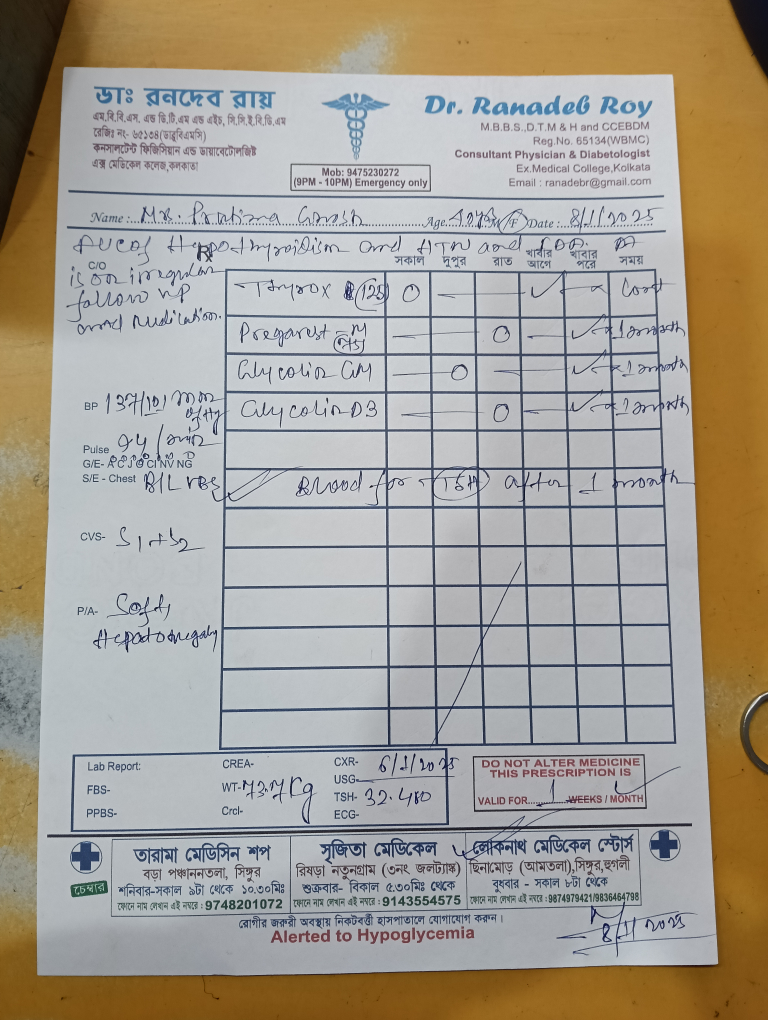 ডাঃ রনদেব রায়
এম.বি.বি.এস. এন্ড ডি.টি.এম এন্ড এইচ, সি.সি.ই.বি.ডি.এম
রেজিঃ নং- ৬৫১৩৪(ডাব্লুবিএমসি)
কনসালটেন্ট ফিজিসিয়ান এন্ড ডায়াবেটোলজিষ্ট
এক্স মেডিকেল কলেজ,কলকাতা
Mob: 9475230272
(9PM - 10PM) Emergency only
Dr. Ranadeb Roy
M.B.B.S.,D.T.M & H and CCEBDM
Reg.No. 65134(WBMC)
Consultant Physician & Diabetologist
Ex.Medical College,Kolkata
Email : ranadebr@gmail.com
Name : Mrs. Pratima Ghosh Age M/F Date : 8/1/2025
Hypothyroidism and HTN and
C/O
is on irregular
follow up
and medication.
সকাল দুপুর রাত খাবার আগে খাবার পরে সময়
Thyrox (125) Cont
1 month
Glycolin GM 1 month
Glycolin D3 1 month
BP 137/101 mm of Hg
Pulse 94/min
G/E- A C J O CI NV NG
S/E - Chest B/L VBS
Blood for TSH after 1 month
CVS- S1+S2
P/A- Soft,
Hepatomegaly
Lab Report:
FBS-
PPBS-
CREA-
WT- 73.7 kg
Crcl-
CXR- 6/1/2025
USG-
TSH- 32.480
ECG-
DO NOT ALTER MEDICINE
THIS PRESCRIPTION IS
VALID FOR 1 WEEKS / MONTH
চেম্বার
তারামা মেডিসিন শপ
বড়া পঞ্চাননতলা, সিঙ্গুর
শনিবার-সকাল ৯টা থেকে ১০.৩০মিঃ
ফোনে নাম লেখান এই নম্বরে : 9748201072
সৃজিতা মেডিকেল
রিষড়া নতুনগ্রাম (৩নং জলট্যাঙ্ক)
শুক্রবার- বিকাল ৫.৩০মিঃ থেকে
ফোনে নাম লেখান এই নম্বরে : 9143554575
লোকনাথ মেডিকেল স্টোর্স
ছিনামোড় (আমতলা),সিঙ্গুর,হুগলী
বুধবার - সকাল ৮টা থেকে
ফোনে নাম লেখান এই নম্বরে : 9874979421/9836464798
রোগীর জরুরী অবস্থায় নিকটবর্ত্তী হাসপাতালে যোগাযোগ করুন।
Alerted to Hypoglycemia
8/1/2025